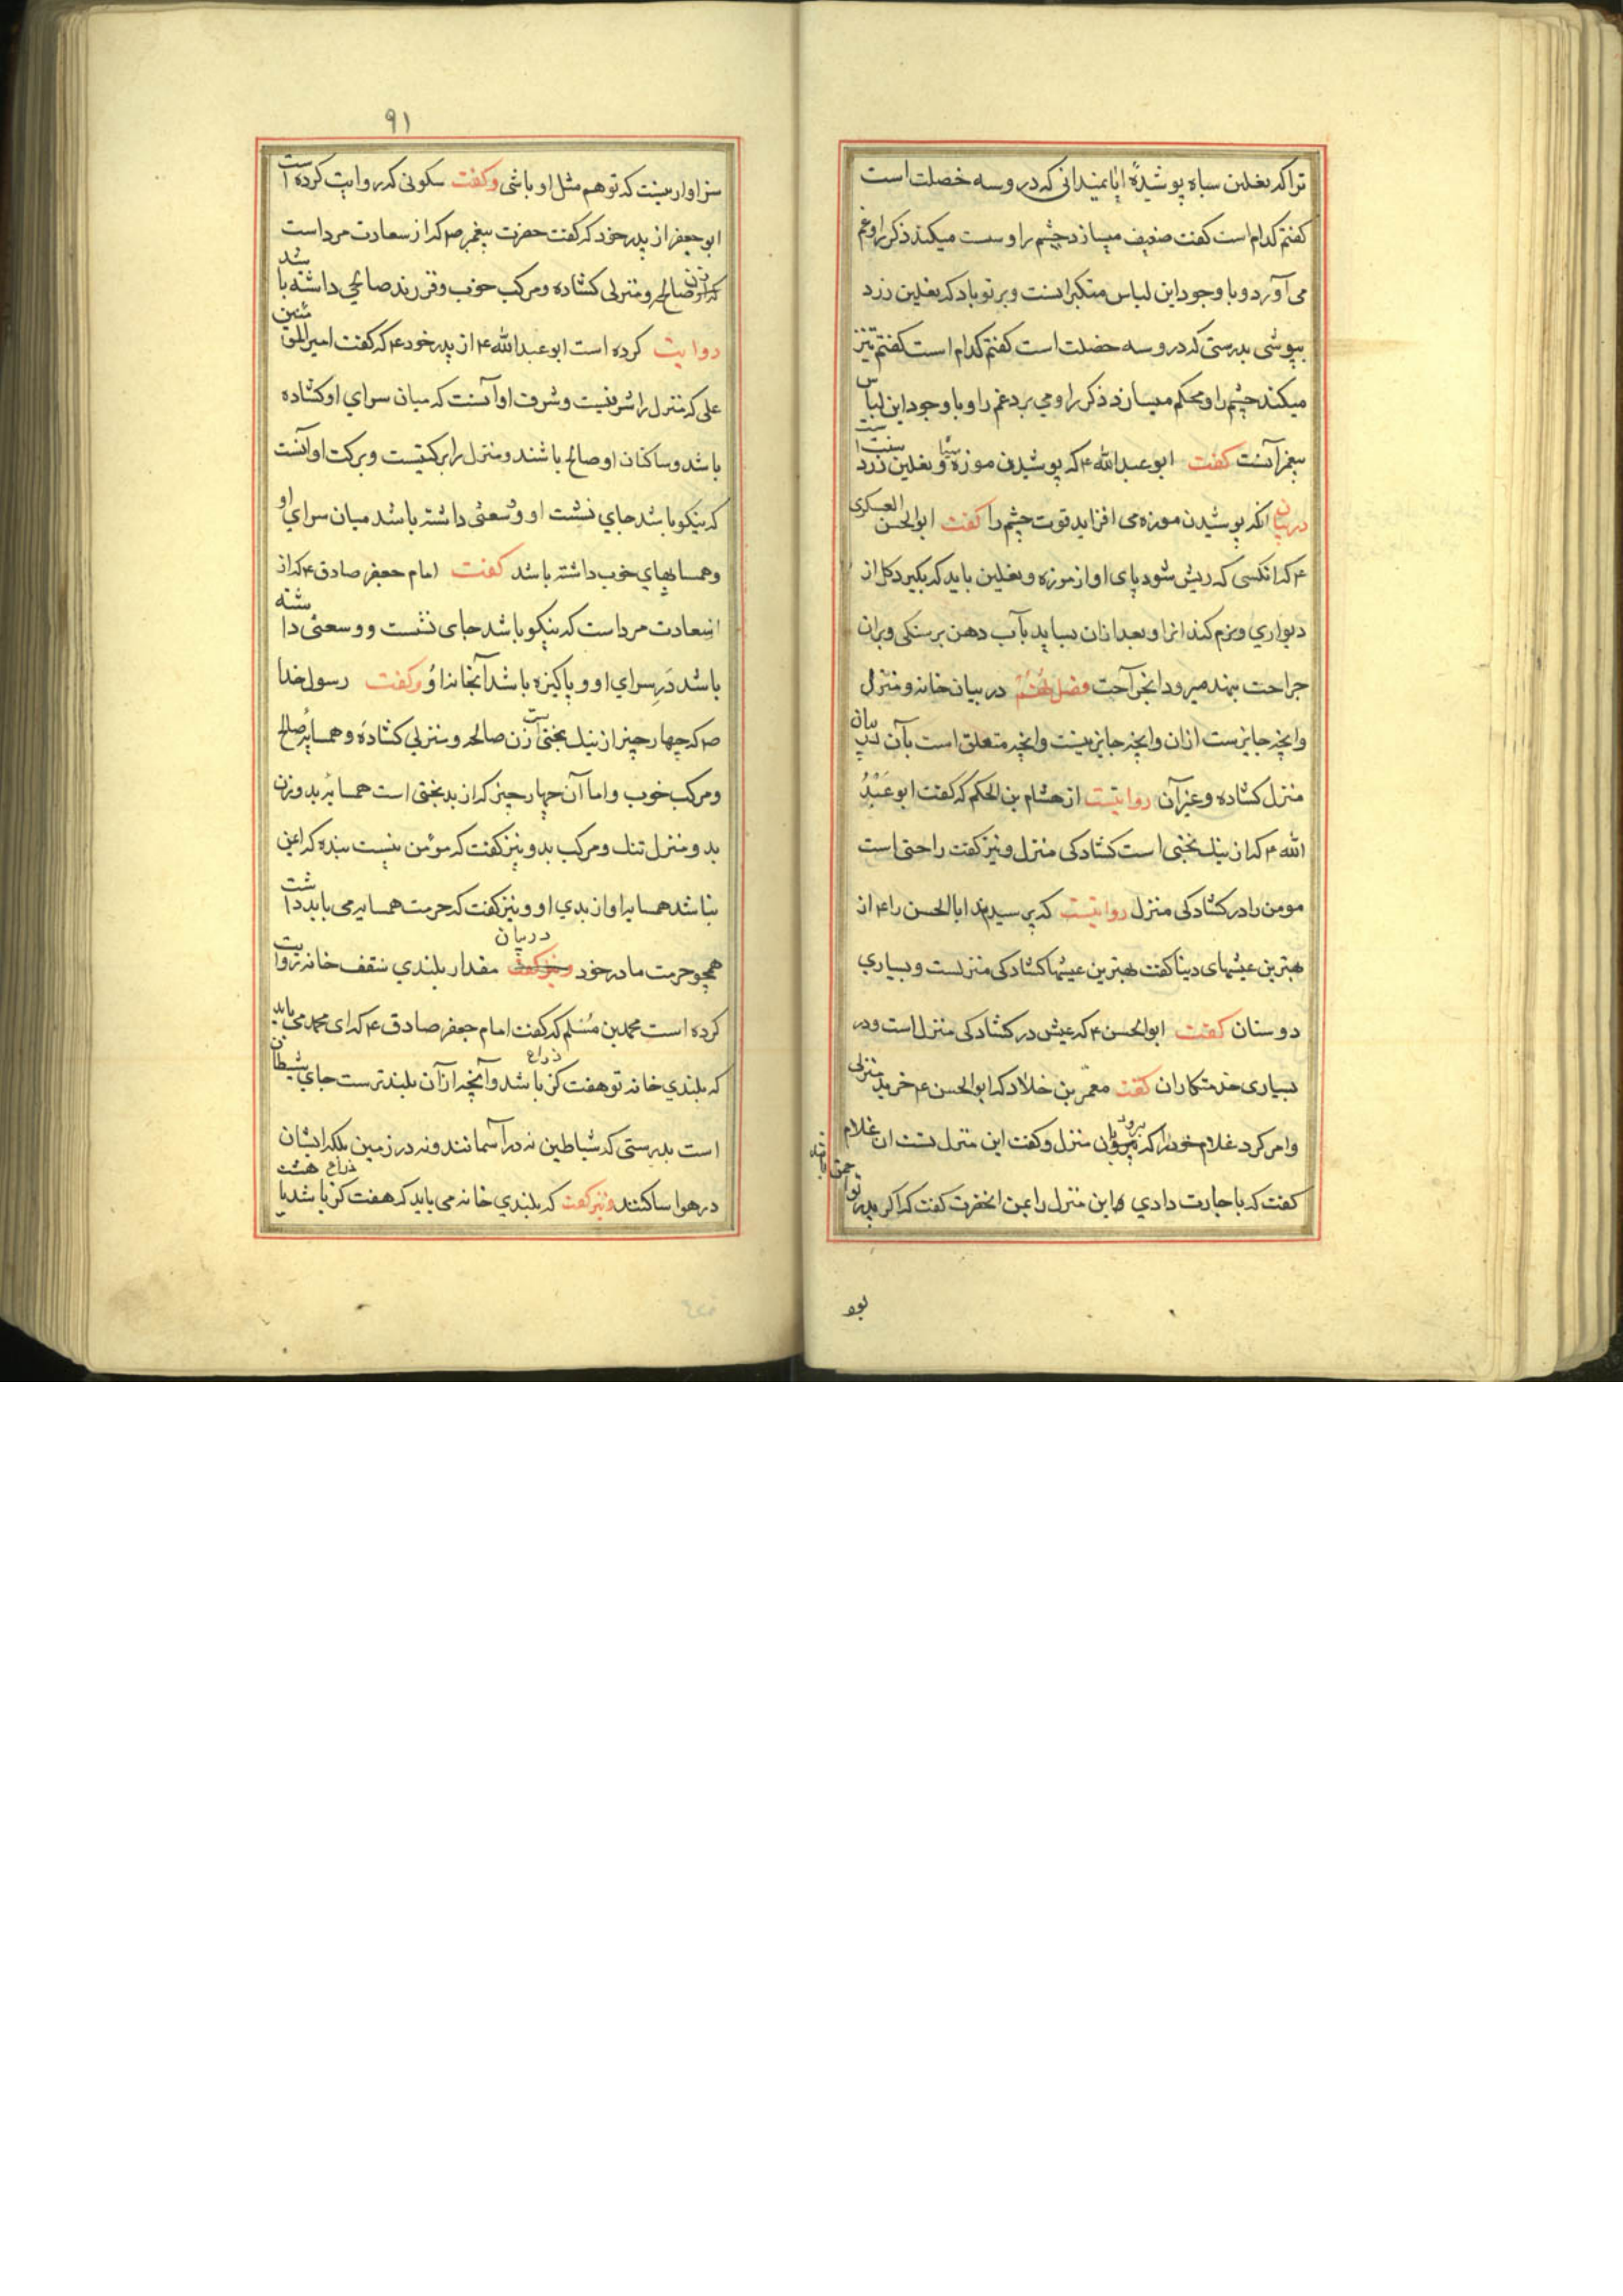 تراکه نعلین سیاه پوشیدهٔ ایا نمیدانی که در و سه خصلت است
کفتم کدام است کفت ضعیف میسازد چشم را و سست میکند ذکر را و غم
می آورد و با وجود این لباس متکبرانست و بر تو باد که نعلین زرد
بپوشی بدرستی که در و سه خصلت است کفتم کدام است کفتم تیز
میکند چشم را و محکم میسازد ذکر را و می برد غم را و با وجود این لباس
پیغمرانست کفت ابو عبد الله ۴ که پوشیدن موزه سیاه و نعلین زرد سنت است
در بیان انکه پوشیدن موزه می افزاید قوت چشم را کفت ابو الحسن العسکری
۴ که انکسی که ریش شود پای او از موزه و نعلین باید که بکیرد کل از
دیواری و نرم کند انرا و بعد ازان بساید بآب دهن بر سنکی و بران
جراحت بنهد میرود انجراحت فصل هفتم در بیان خانه و منزل
وانچه جایزست ازان وانچه جایز نیست وانچه متعلق است بآن در بیان
منزل کشاده و غیر آن روایتست از هشام بن الحکم که کفت ابو عبد
الله ۴ که از نیک بختی است کشادکی منزل و نیز کفت راحتی است
مومن را در کشادکی منزل روایتست که پرسیدند ابا الحسن را ۴ از
بهترین عیشهای دنیا کفت بهترین عیشها کشادکی منزلست و بسیاری
دوستان کفت ابو الحسن ۴ که عیش در کشادکی منزل است و در
بسیاری خدمتکاران کفت معمر بن خلاد که ابو الحسن ۴ خرید منزلی
وامر کرد غلام خود را که برود بآن منزل و کفت این منزل تست ان غلام
کفت که باجارت دادی این منزل را بمن انحضرت کفت که اکر پدر تو احمق باشد
۹۱
سزاوار نیست که تو هم مثل او باشی و کفت سکونی که روایت کرده است
ابو جعفر از پدر خود که کفت حضرت پیغمبر ص که از سعادت مرد است
که زن صالحه و منزلی کشاده و مرکب خوب و فرزند صالحی داشته باشد
روایت کرده است ابو عبد الله ۴ از پدر خود ۴ که کفت امیر المومنین
علی که منزل را شرفیست و شرف او آنست که میان سرای او کشاده
باشد و ساکنان او صالح باشند و منزل را برکتیست و برکت او آنست
که نیکو باشد جای نشست او و وسعتی داشته باشد میان سرای او
و همسایهای خوب داشته باشد کفت امام جعفر صادق ۴ که از
سعادت مرد است که نیکو باشد جای نشست و وسعتی داشته
باشد در سرای او و پاکیزه باشد آنجا نداوُ و کفت رسول خدا
ص که چهار چیز از نیک بختی است زن صالحه و منزلی کشاده و همسایهٔ صالح
و مرکب خوب و اما آن چهار چیز که از بدبختی است همسایهٔ بد و زن
بد و منزل تنک و مرکب بد و نیز کفت که مؤمن نیست بنده که ایمن
نباشد همسایهٔ او از بدی او و نیز کفت که حرمت همسایه می باید داشت
همچو حرمت مادر خود در بیان مقدار بلندی سقف خانه روایت
کرده است محمد بن مسلم که کفت امام جعفر صادق ۴ که ای محمد می باید
که بلندی خانه تو هفت کز ذراع باشد وآنچه از آن بلندترست جای شیطان
است بدرستی که شیاطین نه در آسمانند و نه در زمین بلکه ایشان
در هوا ساکنند و نیز کفت که بلندی خانه می باید که هفت کز ذراع باشد یا هشت